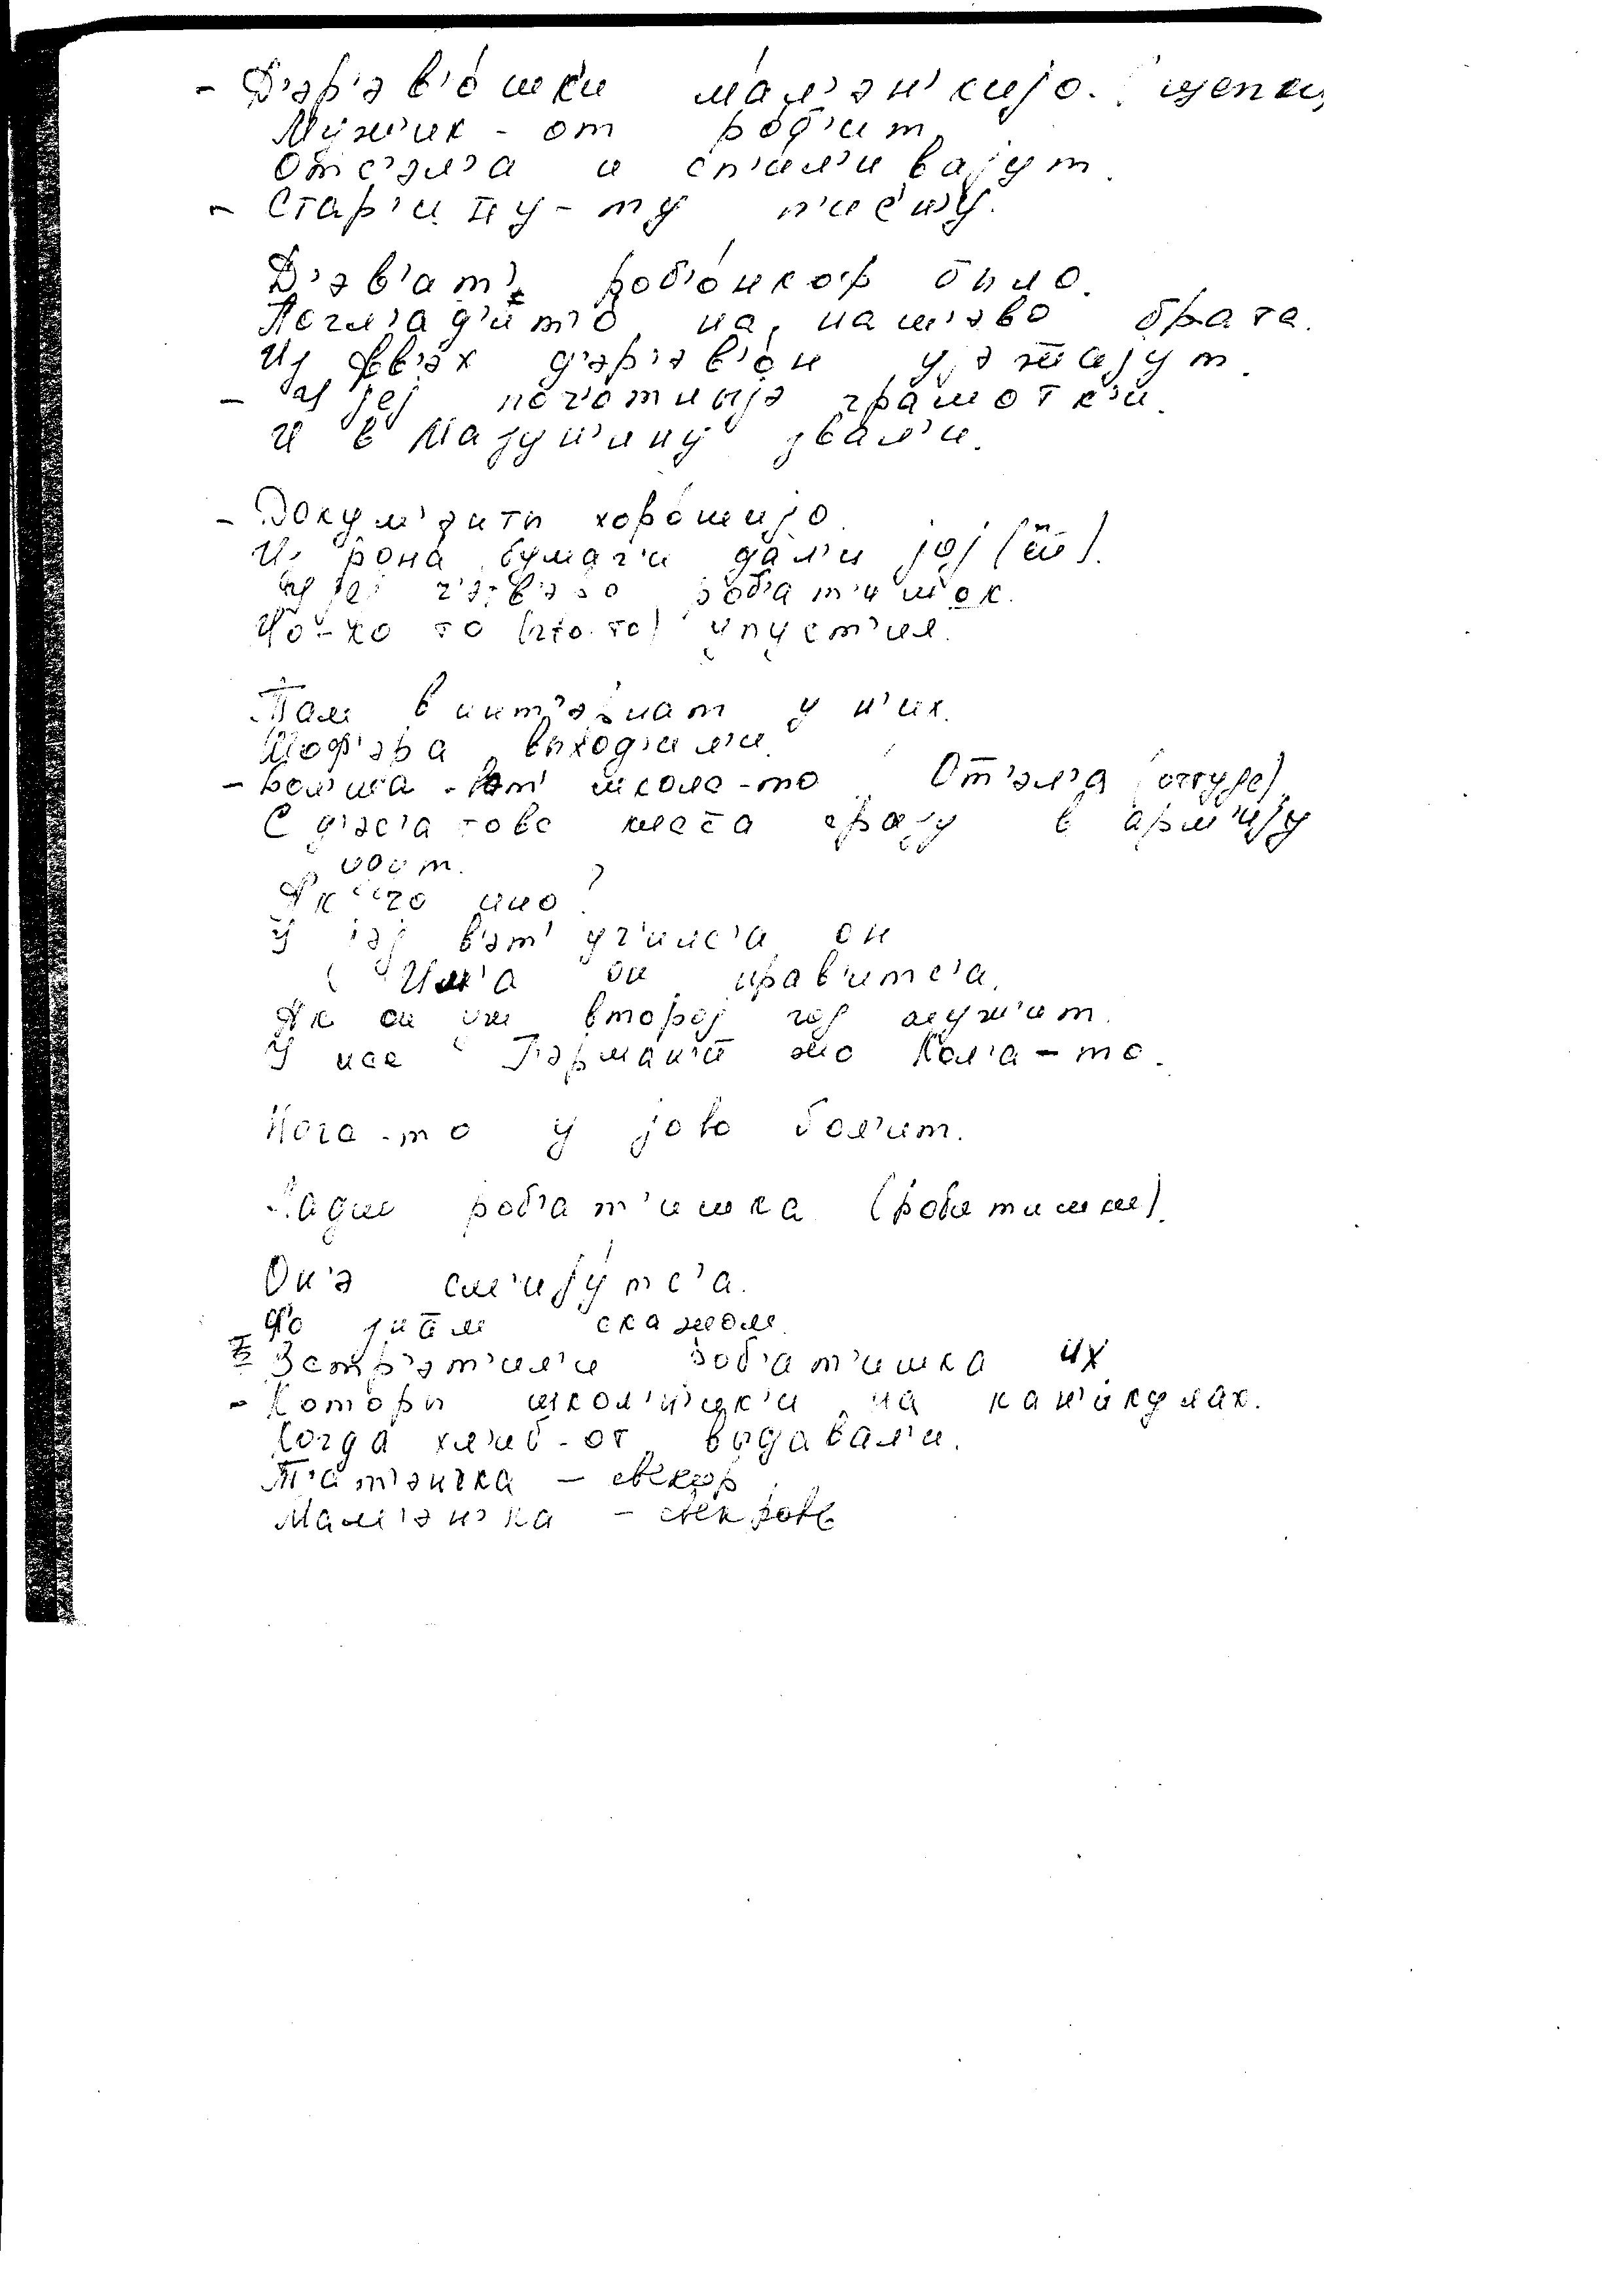 - Д'әр'ә в'о́ шки ма́л'ә н' кијо. щепки,
Мужик - от ро́б'ит
Отс'эл'а и сп'ил'и вајут.
- Стар'и ну - ту п'ис'н'у.
Д'эв'ат' роб'о́нкоф было.
Погл'ад'ит'о на, наш'эво брата.
Из фс'эх д'эр'эв'он' уј э жајут.
- У јеј поч'отныјэ гра́мотк'и.
И в Мазун'ину звал'и.
- Докум'энты хоро́шијо
И рона бумаг'и дал'и јој (ей).
У јеј роб'ат'ишок.
Чо-ко то (что-то) упуст'ил.
Там в инт'эрнат у н'их.
Шоф'эра выход'ил'и
- Бол'ша - школа-то От'эл'а (оттуда)
С д'эс'атово класса сразу в арм'ију
Ак чо ино?
У јэј в'эт' уч'илс'а он
он нрав'итс'а.
Ак он уж второј год служ'ит.
У нас Г'эрман'ий жо Кол'а - то.
Нога - то у јово бол'ит.
роб'ат'ишка (робятишки).
Он'э см'ију́тс'а.
скажом.
Встр'эт'ил'и роб'ат'ишка их
- Которы школ'н'ик'и на кан'икулах.
Когда хл'иб-от выдавал'и.
Т'ат'эн'ка - свекор
Мам'эн'ка - свекровь